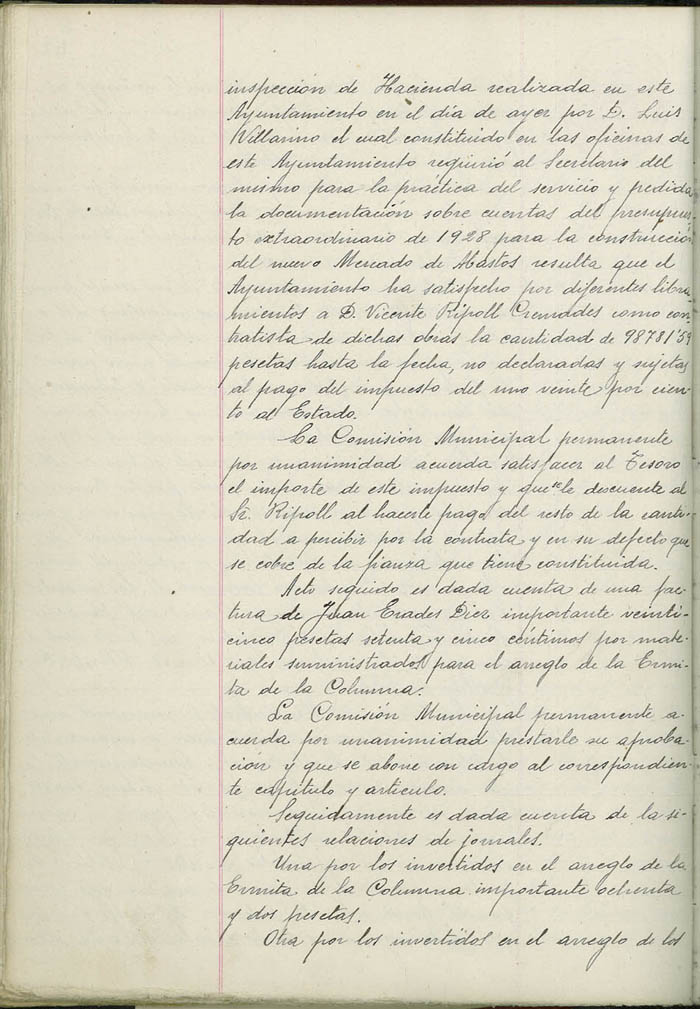 inspección de Hacienda realizada en este
Ayuntamiento en el día de ayer por D. Luis
Villarino el cual constituido en las oficinas de
este Ayuntamiento requirió al Secretario del
mismo para la práctica del servicio y pedida
la documentación sobre cuentas del presupues-
to extraordinario de 1928 para la construcción
del nuevo Mercado de Abastos resulta que el
Ayuntamiento ha satisfecho por diferentes libra-
mientos a D. Vicente Ripoll Cremades como con
tratista de dichas obras la cantidad de 98781'59
pesetas hasta la fecha, no declaradas y sujetas
al pago del impuesto del uno veinte por cien-
to al Estado.
La Comisión Municipal permanente
por unanimidad acuerda satisfacer al Tesoro
el importe de este impuesto y que se le descuente al
Sr. Ripoll al hacerle pago del resto de la canti-
dad a percibir por la contrata y en su defecto que
se cobre de la fianza que tiene constituida.
Acto seguido es dada cuenta de una fac-
tura de Juan Erades Diez importante veinti-
cinco pesetas setenta y cinco céntimos por mate-
riales suministrados para el arreglo de la Ermi-
ta de la Columna.
La Comisión Municipal permanente a-
cuerda por unanimidad prestarle su aproba-
ción y que se abone con cargo al correspondien-
te capítulo y artículo.
Seguidamente es dada cuenta de la si-
guientes relaciones de jornales.
Una por los invertidos en el arreglo de la
Ermita de la Columna importante ochenta
y dos pesetas.
Otra por los invertidos en el arreglo de los